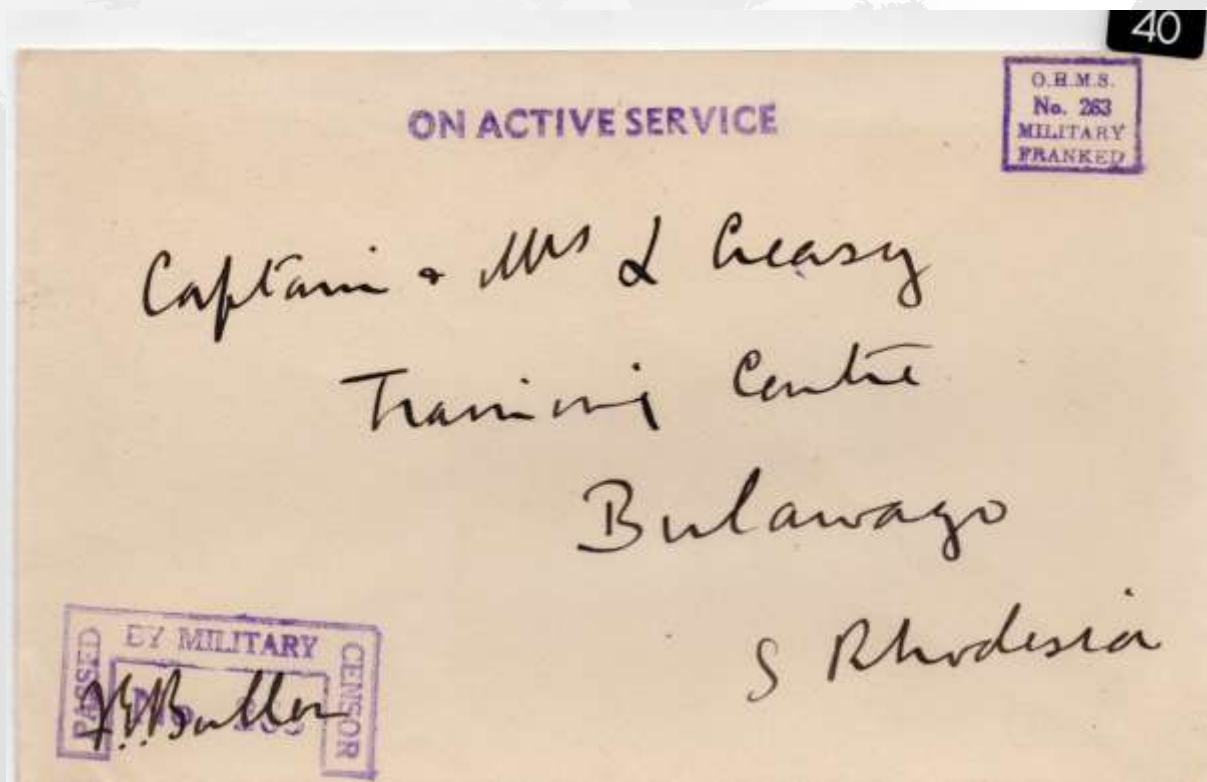 40
ON ACTIVE SERVICE
O.H.M.S.
No. 263
MILITARY
FRANKED
Captain + Mrs L Creasy
Training Centre
Bulawayo
S Rhodesia
PASSED
BY MILITARY
CENSOR
No.